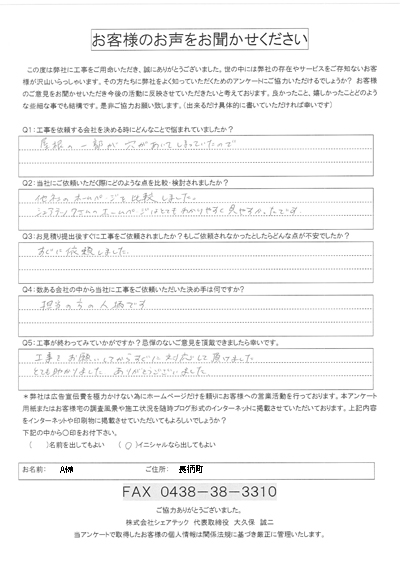 お客様のお声をお聞かせください
この度は弊社に工事をご用命いただき、誠にありがとうございました。世の中には弊社の存在やサービスをご存知ないお客
様が沢山いらっしゃいます。その方たちに弊社をよく知っていただくためのアンケートにご協力いただけるでしょうか？ お客様
のご意見をお聞かせいただき今後の活動に反映させていただきたいと考えております。良かったこと、嬉しかったことどのよう
な些細な事でも結構です。是非ご協力お願い致します。（出来るだけ具体的に書いていただければ幸いです）
Q1：工事を依頼する会社を決める時にどんなことで悩まれていましたか？
屋根の一部が穴があいてしまっていたので
Q2：当社にご依頼いただく際にどのような点を比較・検討されましたか？
他社のホームページを比較しました。
シェアテックさんのホームページはとてもわかりやすく見やすかったです。
Q3：お見積り提出後すぐに工事をご依頼されましたか？もしご依頼されなかったとしたらどんな点が不安でしたか？
すぐに依頼しました。
Q4：数ある会社の中から当社に工事をご依頼いただいた決め手は何ですか？
担当の方の人柄です
Q5：工事が終わってみていかがですか？忌憚のないご意見を頂戴できましたら幸いです。
工事をお願いしてからすぐに対応して頂けました
とても助かりました ありがとうございました
＊弊社は広告宣伝費を極力かけない為にホームページだけを頼りにお客様への営業活動を行っております。本アンケート
用紙またはお客様宅の調査風景や施工状況を随時ブログ形式のインターネットに掲載させていただいております。上記内容
をインターネットや印刷物に掲載させていただいてもよろしいでしょうか？
下記の中から〇印をお付下さい。
（ ）名前を出してもよい （〇）イニシャルなら出してもよい
お名前： A様 ご住所： 長柄町
FAX 0438-38-3310
ご協力ありがとうございました。
株式会社シェアテック 代表取締役 大久保 誠二
当アンケートで取得したお客様の個人情報は関係法規に基づき厳正に管理いたします。